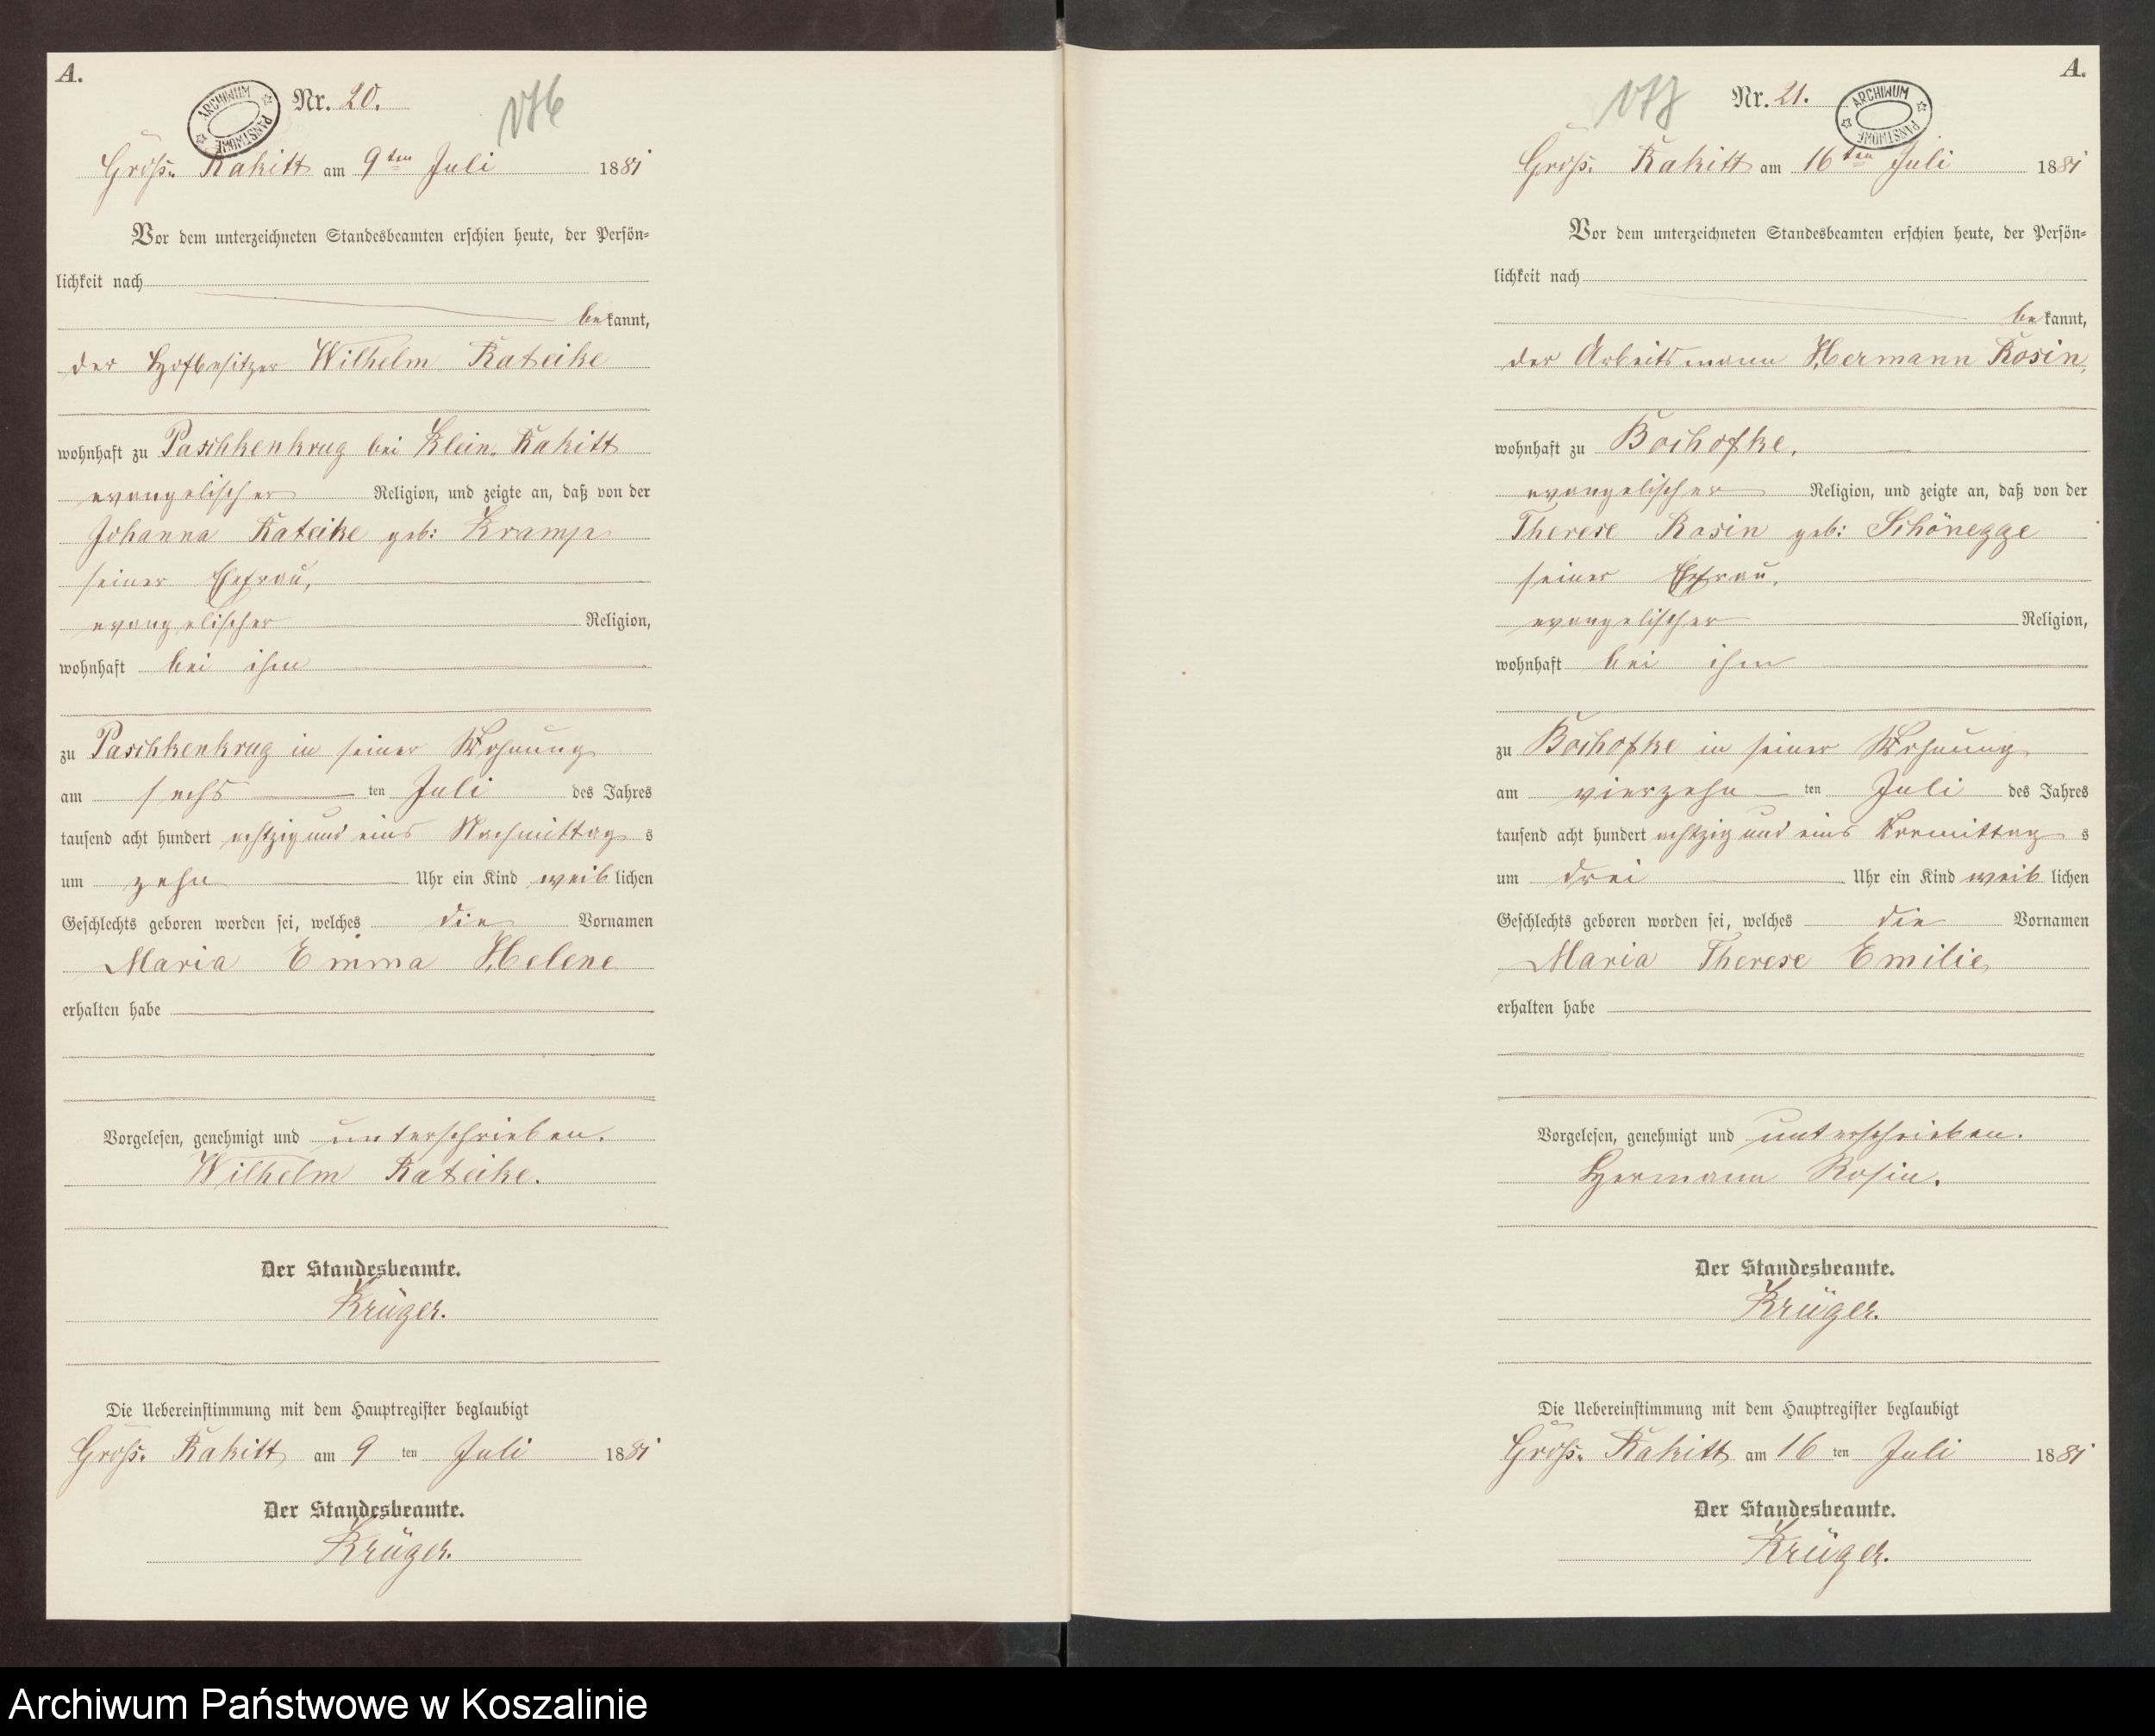 A.
ARCHIWUM PAŃSTWOWE
Nr. 20.
176
Groß. Rakitt am 9ten Juli 1881
Vor dem unterzeichneten Standesbeamten erschien heute, der Persön-
lichkeit nach
bekannt,
der Hofbesitzer Wilhelm Rateike
wohnhaft zu Paschkenkrug bei Klein. Rakitt
evangelischer Religion, und zeigte an, daß von der
Johanna Rateike geb: Kramp
seiner Ehefrau,
evangelischer Religion,
wohnhaft bei ihm
zu Paschkenkrug in seiner Wohnung
am sechs ten Juli des Jahres
tausend acht hundert achtzig und eins Nachmittag s
um zehn Uhr ein Kind weiblichen
Geschlechts geboren worden sei, welches die Vornamen
Maria Emma Helene
erhalten habe
Vorgelesen, genehmigt und unterschrieben.
Wilhelm Rateike.
Der Standesbeamte.
Krüger.
Die Uebereinstimmung mit dem Hauptregister beglaubigt
Groß. Rakitt am 9 ten Juli 1881
Der Standesbeamte.
Krüger.
A.
177
Nr. 21.
ARCHIWUM PAŃSTWOWE
Groß. Rakitt am 16ten Juli 1881
Vor dem unterzeichneten Standesbeamten erschien heute, der Persön-
lichkeit nach
bekannt,
der Arbeitsmann Hermann Rosin,
wohnhaft zu Bochofke,
evangelischer Religion, und zeigte an, daß von der
Therese Rosin geb: Schönegge
seiner Ehefrau,
evangelischer Religion,
wohnhaft bei ihm
zu Bochofke in seiner Wohnung
am vierzehn ten Juli des Jahres
tausend acht hundert achtzig und eins Vormittag s
um drei Uhr ein Kind weib lichen
Geschlechts geboren worden sei, welches die Vornamen
Maria Therese Emilie
erhalten habe
Vorgelesen, genehmigt und unterschrieben.
Hermann Rosin.
Der Standesbeamte.
Krüger.
Die Uebereinstimmung mit dem Hauptregister beglaubigt
Groß. Rakitt am 16 ten Juli 1881
Der Standesbeamte.
Krüger.
Archiwum Państwowe w Koszalinie